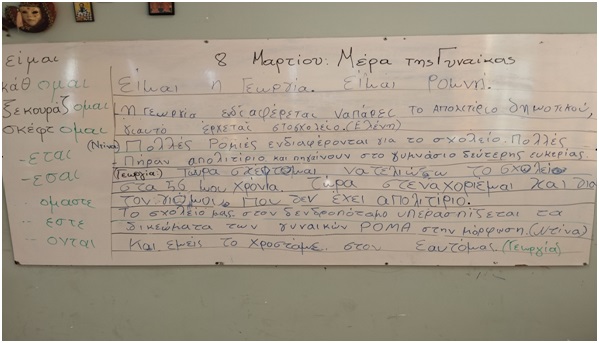 είμαι
κάθομαι
ξεκουράζομαι
σκέφτομαι
-εται
-εσαι
-όμαστε
-εστε
-ονται
8 Μαρτίου: Μέρα της Γυναίκας
Είμαι η Γεωργία. Είμαι Ρομνή.
-Η Γεωργία ενδιαφέρεται να πάρει το απολιτίριο δημοτικού,
γιαυτό έρχεται στο σχολείο. (Ελένη)
(Ντίνα) Πολλές Ρομιές ενδιαφέρονται για το σχολείο. Πολλές
πήραν απολιτίριο και πηγαίνουν στο γυμνάσιο δεύτερης ευκερίας.
(Γεωργία) Τώρα σκέφτομαι να τελιώσω το σχολείο
στα 56 μου χρόνια. Τώρα στεναχοριέμαι και για
τον γιό μου που δεν έχει απολιτίριο.
Το σχολείο μας στον δενδροπόταμο υπερασπίζεται τα
δικεώματα των γυναικών ΡΟΜΑ στην μόρφωση. (Ντίνα)
Και εμείς το χροστάμε στον εαυτόμας (Γεωργία)